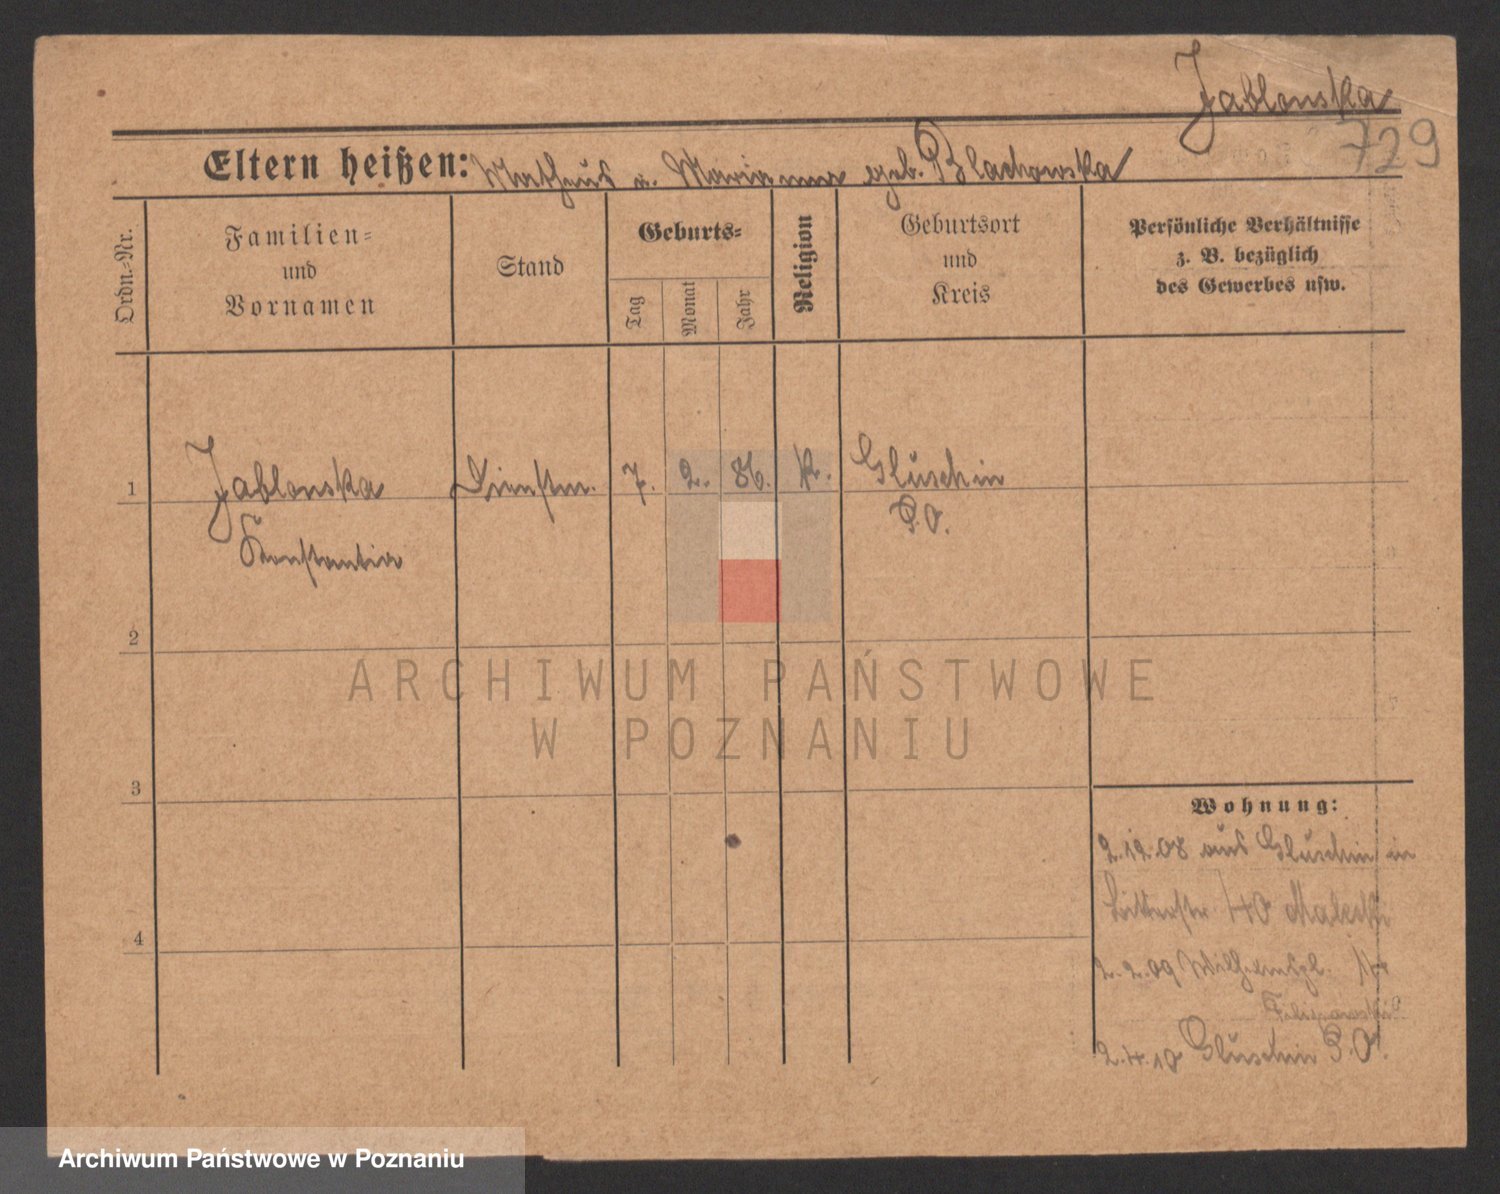 Jablonska
729
Eltern heißen: Mathäus u. Marianna geb. Blachowska
Ordn.-Nr.
Familien-
und
Vornamen
Stand
Geburts-
Tag
Monat
Jahr
Religion
Geburtsort
und
Kreis
Persönliche Verhältnisse
z. B. bezüglich
des Gewerbes usw.
1 Jablonska Dienstm. 7. 2. 86. k. Gluschin
Konstantia P. O.
2
3
4
ARCHIWUM PAŃSTWOWE
W POZNANIU
Wohnung:
2.12.08 aus Gluschin in
40
2.2.09 Wilhelmspl.
2.4.10 Gluschin P. O.
Archiwum Państwowe w Poznaniu